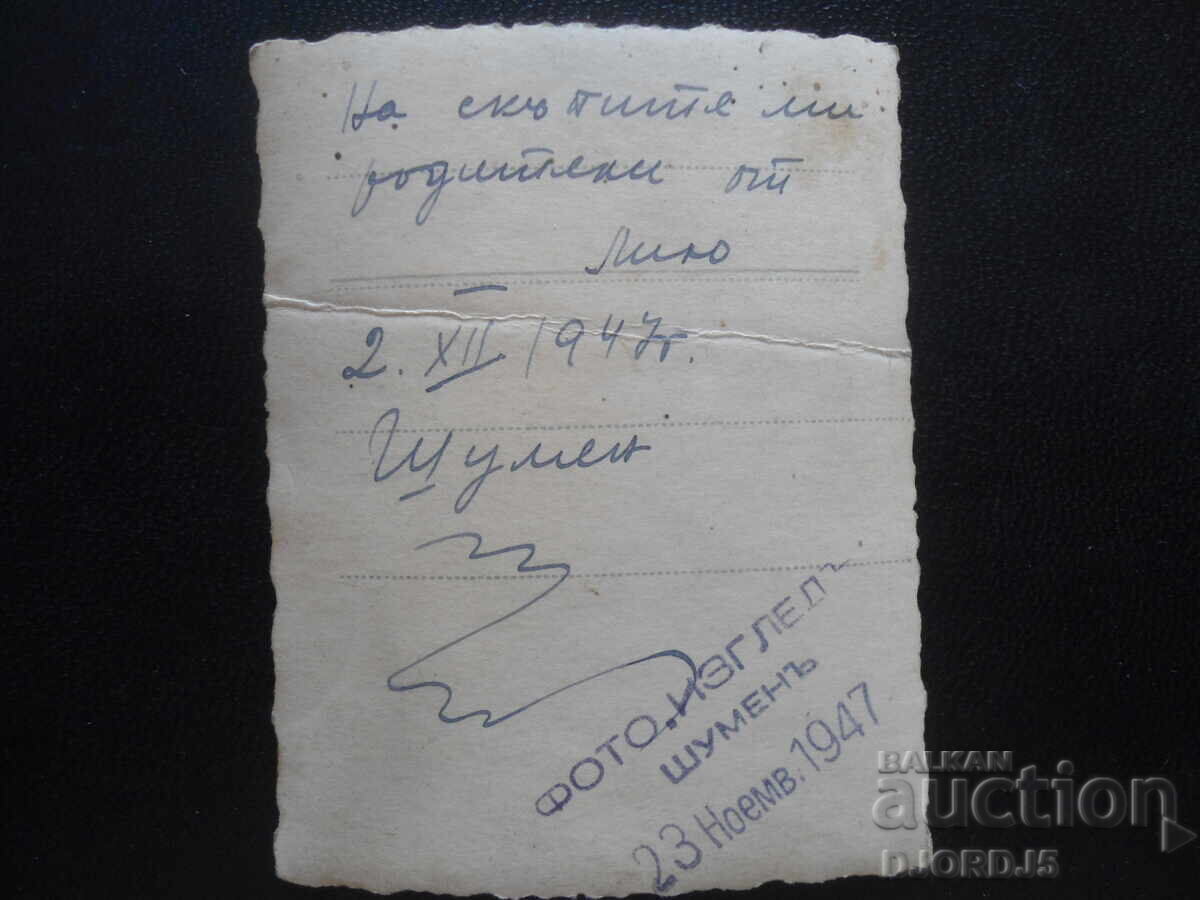 На скъпите ми
родители от
Лию
2. XII 1947г.
Шумен
ФОТО „ИЗГЛЕДЪ"
ШУМЕНЪ
23 Ноемв. 1947
BALKAN
auction
DJORDJ5